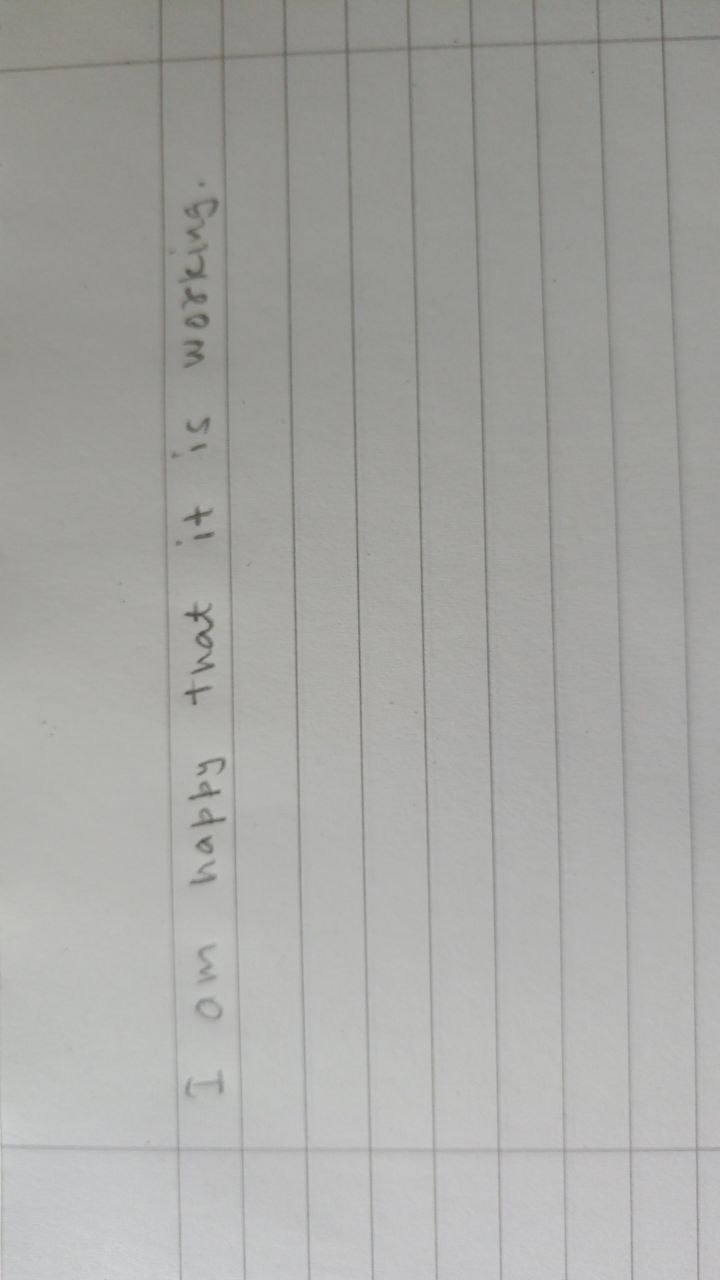 I am happy that it is working.